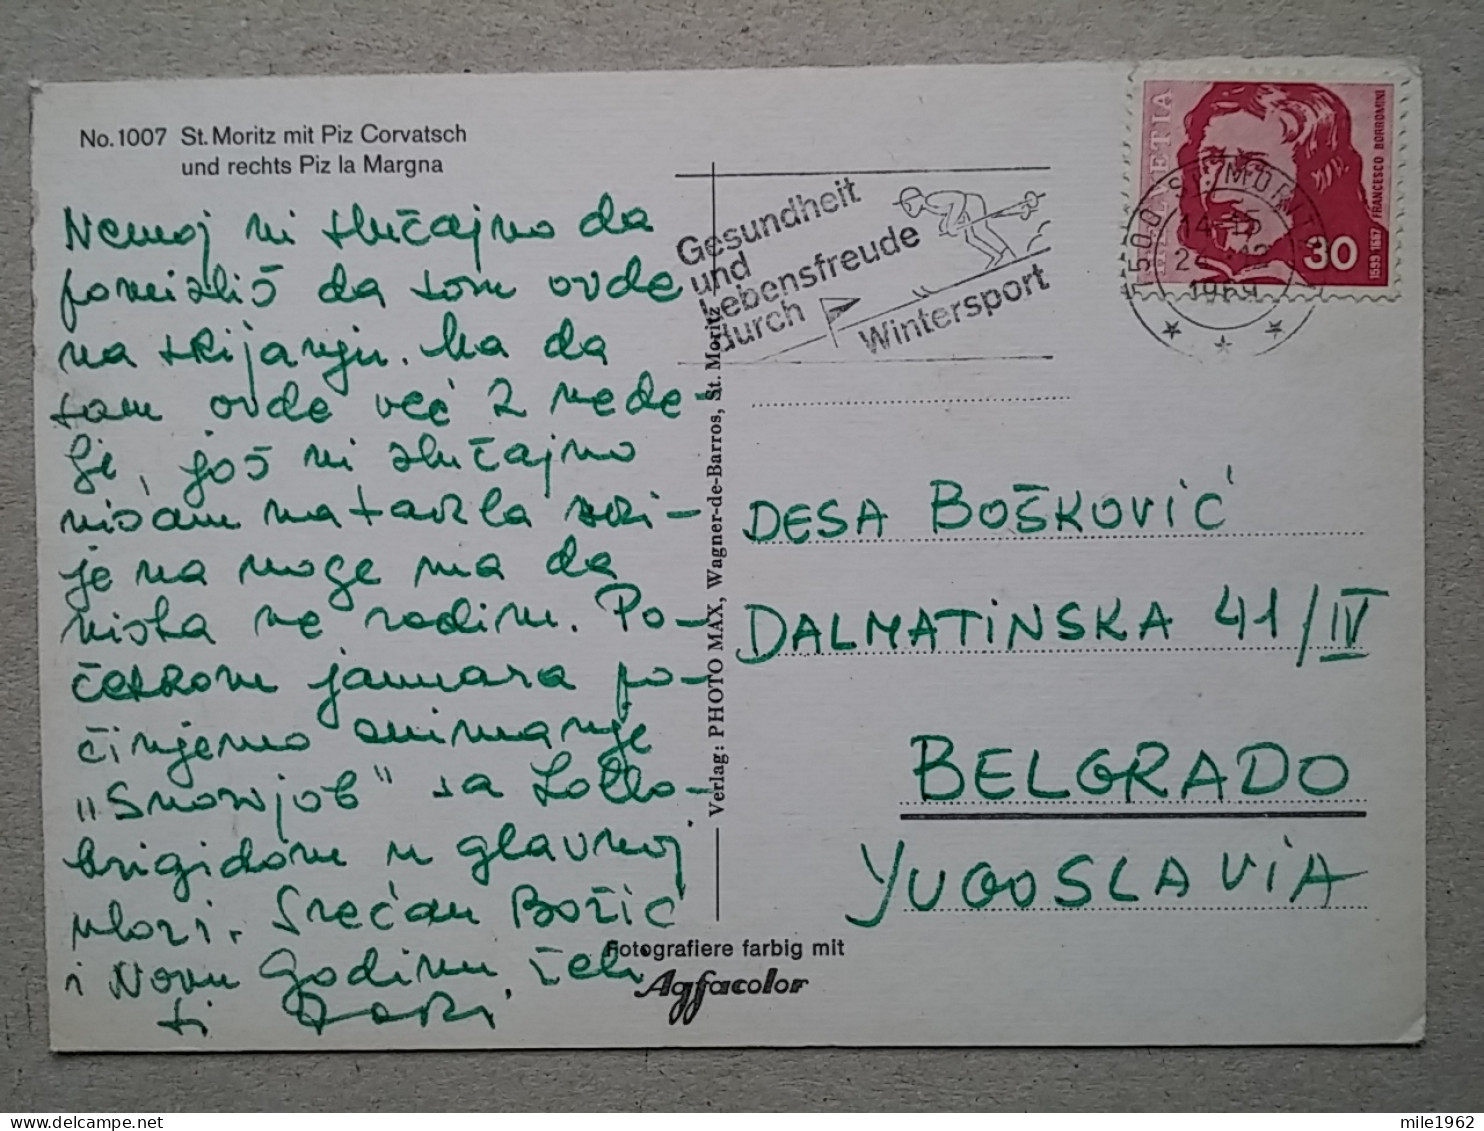 No. 1007 St. Moritz mit Piz Corvatsch
und rechts Piz la Margna
Nemoj ni slučajno da
pomisliš da sam ovde
na skijanju. Ma da
sam ovde već 2 nede-
lje, još ni slučajno
nisam natakla ski-
je na noge ma da
ništa ne radim. Po-
četkom januara po-
činjemo snimanje
"Snowjob" sa Lollo-
brigidom u glavnoj
ulozi. Srećan Božić
i Novu Godinu, želi
ti
Gesundheit
und
Lebensfreude
durch
Wintersport
HELVETIA
FRANCESCO BORROMINI
1599 1667
30
7500 ST. MORITZ
1969
DESA BOŠKOVIĆ
DALMATINSKA 41/IV
BELGRADO
YUGOSLAVIA
Verlag: PHOTO MAX, Wagner-de-Barros, St. Moritz
Fotografiere farbig mit
Agfacolor
mile1962